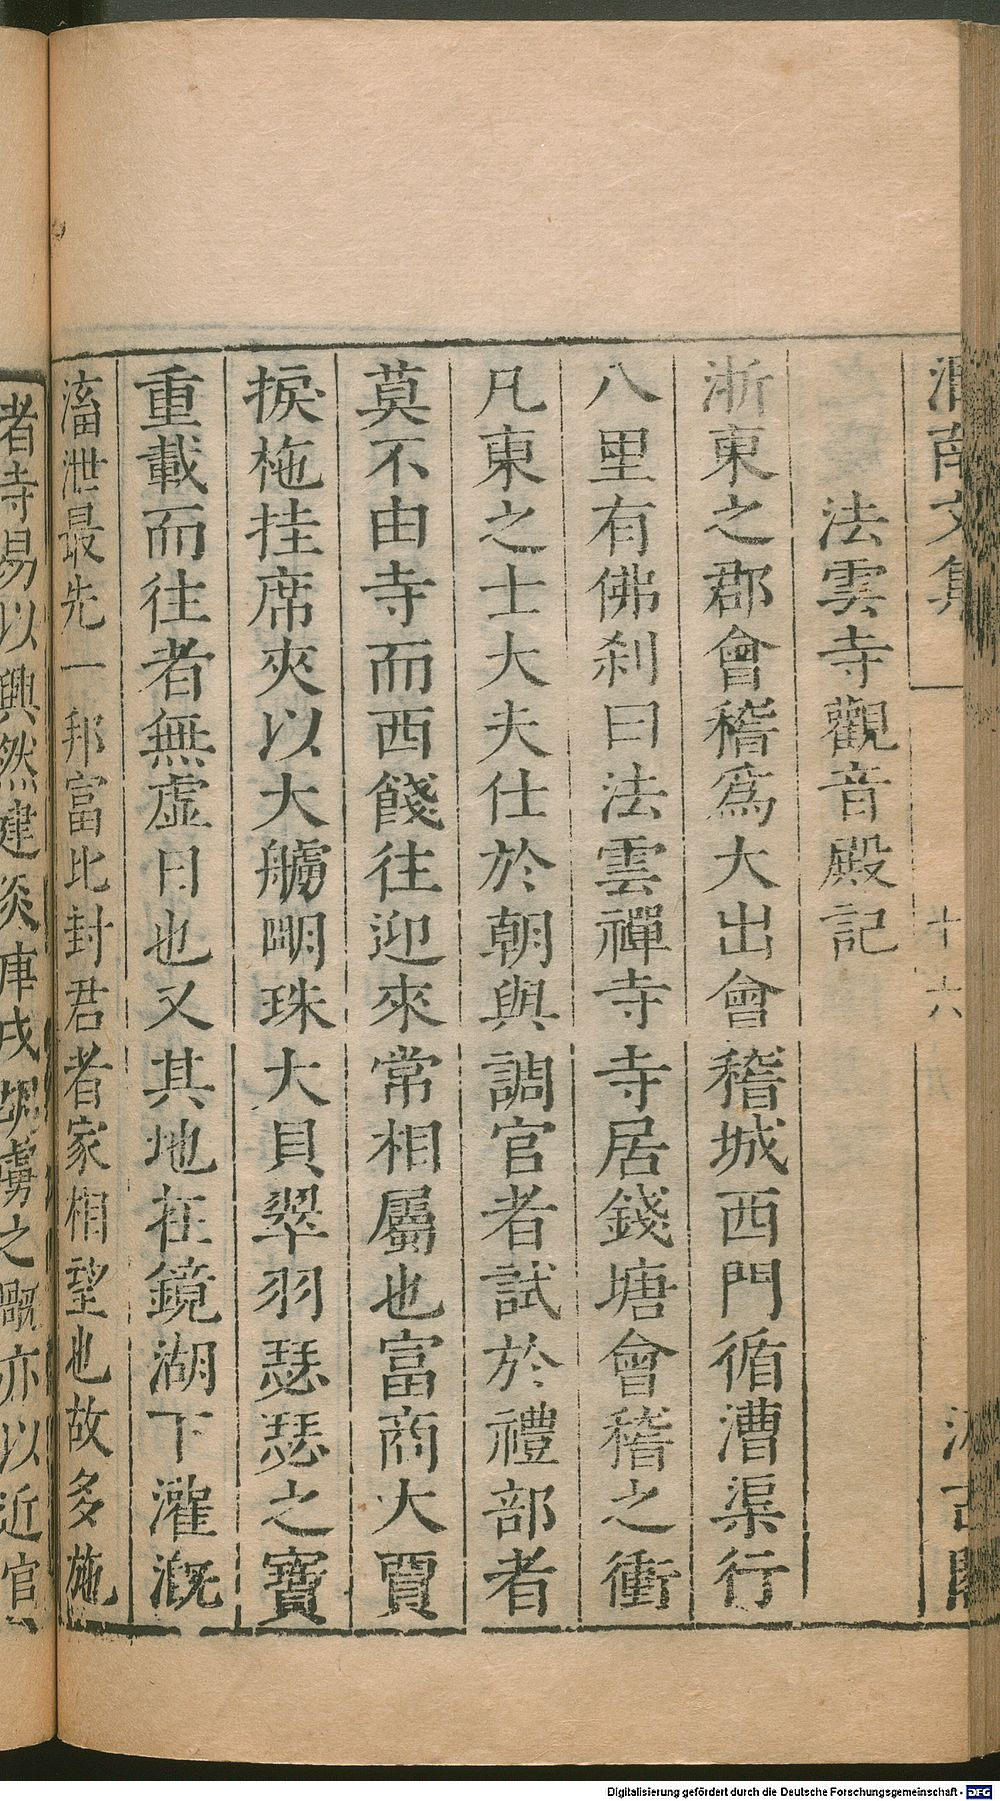 渭南文集
十六
汲古閣
法雲寺觀音殿記
浙東之郡會稽爲大出會稽城西門循漕渠行
八里有佛刹曰法雲禪寺寺居錢塘會稽之衝
凡東之士大夫仕於朝與調官者試於禮部者
莫不由寺而西餞往迎來常相屬也富商大賈
捩柂挂席夾以大艣明珠大貝翠羽瑟瑟之寶
重載而往者無虚日也又其地在鏡湖下灌溉
滀泄最先一邦富比封君者家相望也故多施
者寺易以興然建炎庫戌胡虜之𭊌亦以近官
Digitalisierung gefördert durch die Deutsche Forschungsgemeinschaft - DFG